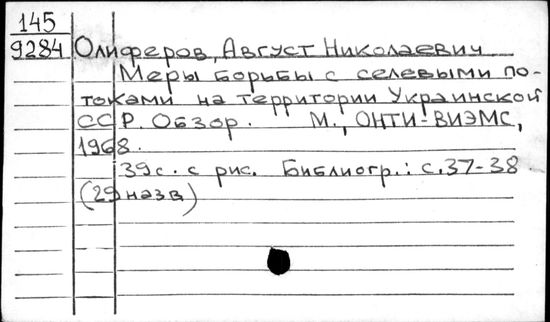 145
9284 Олиферов, Август Николаевич
Меры борьбы с селевыми по-
токами на территории Украинской
ССР. Обзор. М., ОНТИ-ВИЭМС,
1968.
39с. с рис. Библиогр.: с.37-38
(29 назв)